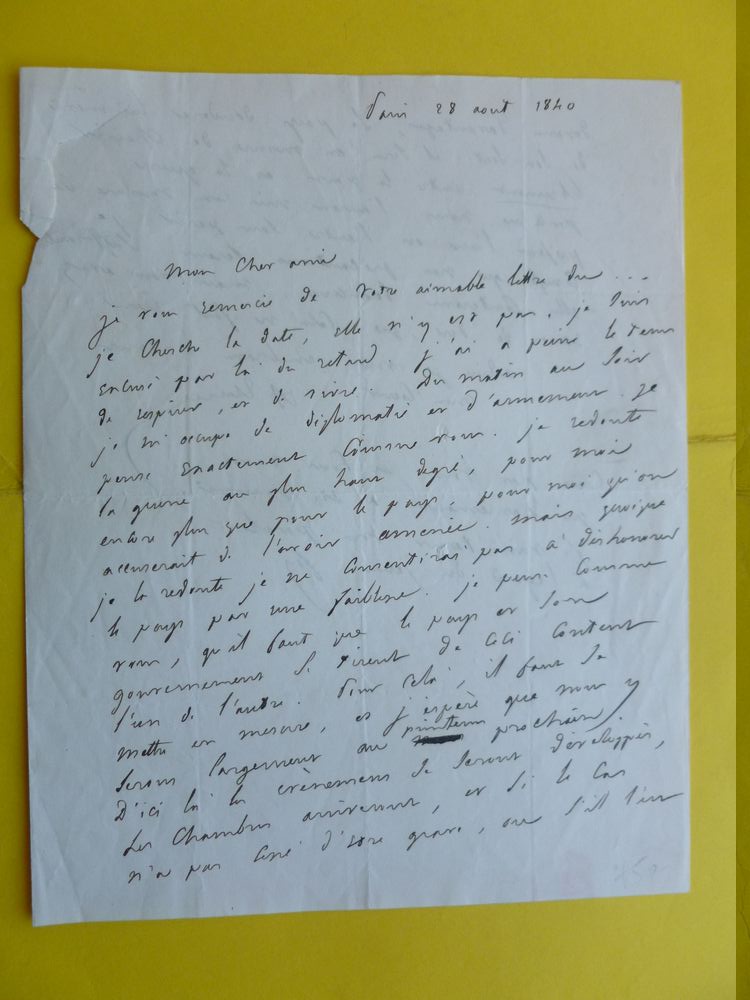 Paris 28 aout 1840
Mon Cher ami
je vous remercie de votre aimable lettre du ...
je cherche la date, elle n'y est pas. je suis
excusé par là du retard j'ai a peine le tems
de respirer, et de vivre. Du matin au soir
je m'occupe de diplomatie et d'armement. je
pense exactement comme vous. je redoute
la guerre au plus haut degré, pour moi
encore plus que pour le pays, pour moi qu'on
accuserait de l'avoir amenée. Mais quoique
je la redoute je ne consentirai pas à deshonorer
le pays par une faiblesse. je pense comme
vous, qu'il faut que le pays et son
gouvernement se tirent de ceci contents
l'un de l'autre. Pour cela, il faut se
mettre en mesure, et j'espère que nous y
serons largement au printems prochain.
D'ici là les evènemens se seront développés,
les Chambres arriveront, et si le cas
n'a pas cessé d'etre grave, ou s'il l'est